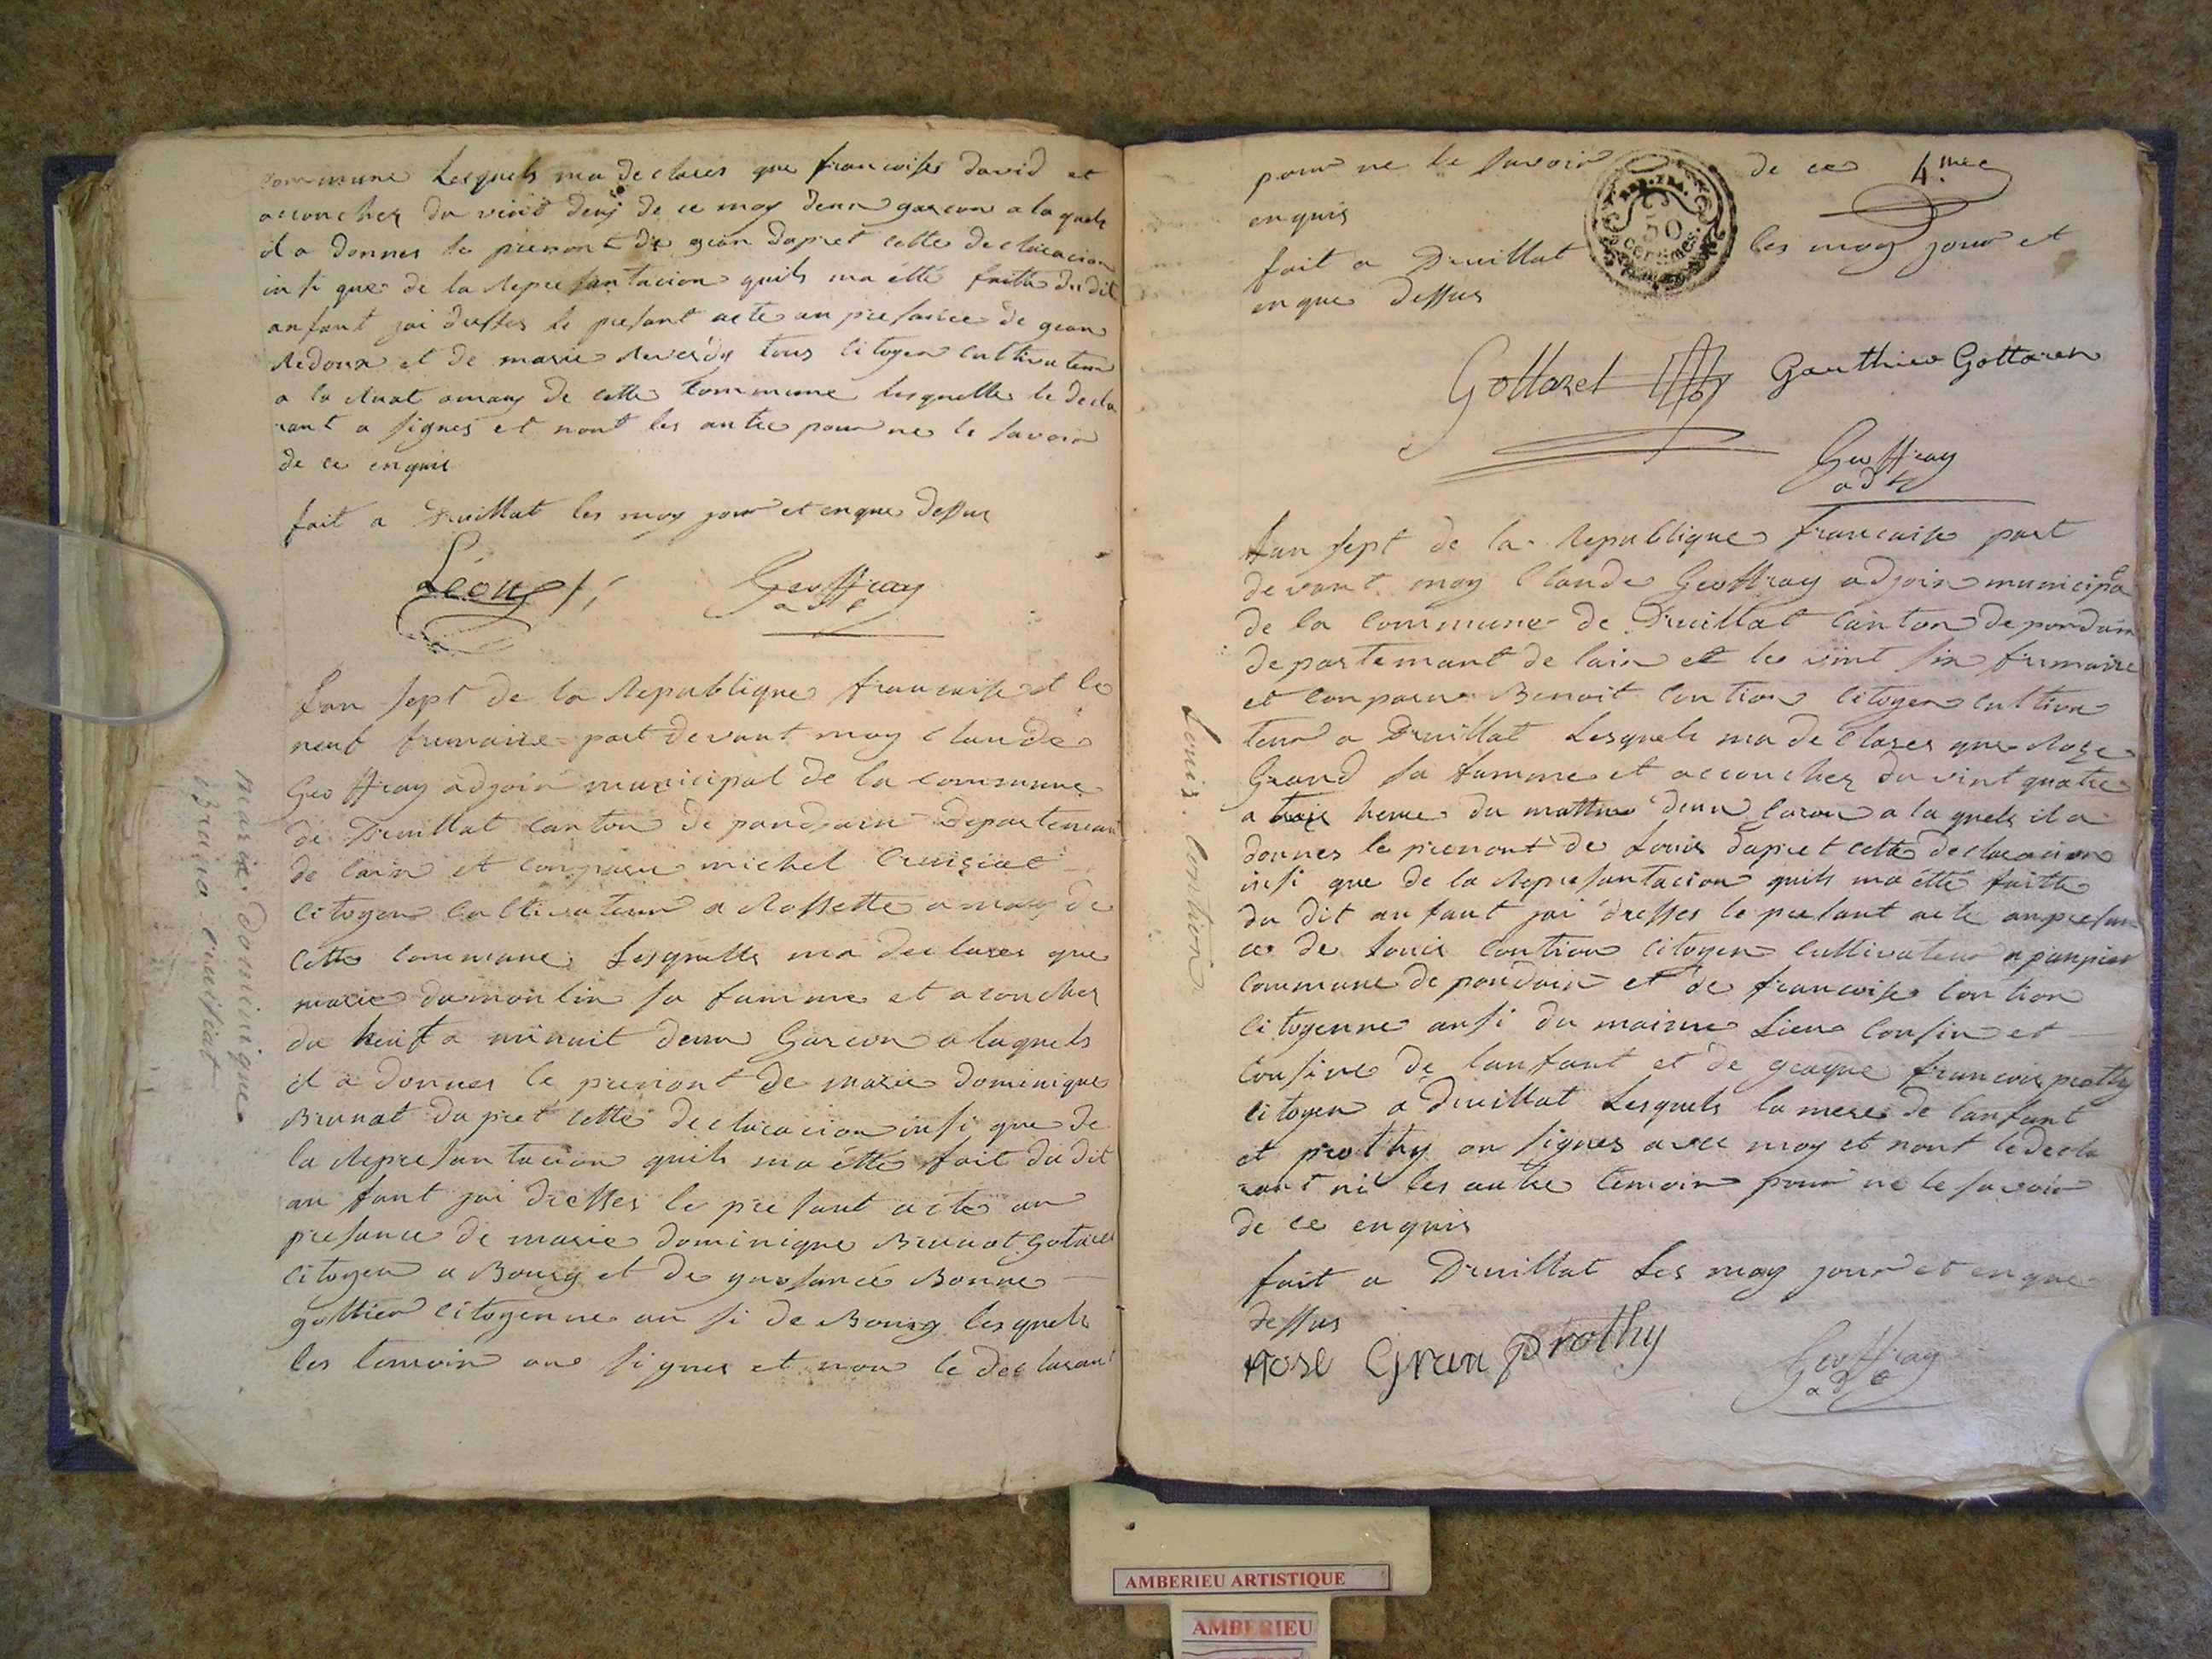 commune Lesquels ma declares que francoise david et
accouches du vint deuj de ce moy deun garcon a laquels
il a donnes le prenont de gean dapret cette declaracion
insi que de la Represantacion quils ma étté faitte du dit
anfant jai dresses le presant acte an presance de gean
Redoux et de marie tous citoyen cultivateur
a la amaux de cette commune lesquelles le decla
rant a signes et nont les autre pour ne le savoir
de ce enquis
fait a Druillat les moy jour et enque dessus
Léony Geoffray
adt
Lan sept de la Republique francaise et le
neuf frumaire part devant moy Claude
Geoffray adjoin municipal de la commune
de Druillat canton de pondain departemant
de lain et conparu michel Cruisiat
citoyen cultivateur a Rossette amaux de
cette commune Lesquelles ma declares que
marie dumoulin sa famme et acouches
du huit a minuit deun Garcon a laquels
il a donnes le prenont de marie dominique
Brunat dapret cette declaracion insi que de
la Represantacion quils ma étté fait du dit
anfant jai dresses le presant acte an
presance de marie dominique Brunat Gotarel
citoyen a Bourg et de Bonne
gottier citoyenne ansi de Bourg lesquels
les temoin ons signes et non le declarant
marie dominique
Bruna cruisiat
pour ne le savoir de ce 4.me
enquis
REP. FRA.
50
centimes
fait a Druillat les moy jour et
enque dessus
Gottarel Gauthier Gottaren
Geoffray
adt
Lan sept de la Republique francaise part
devant moy Claude Geoffray adjoin municipa
de la commune de Druillat canton de pondain
departemant de lain et le vint six frumaire
et conparu Benoit Contion citoyen cultiva
teur a Druillat Lesquels ma declares que Roze
Grand sa famme et accouches du vint quatre
a troix heure du mattin deun Garcon a laquels il a
donnes le prenont de Louis dapret cette declaracion
insi que de la Represantacion quils ma étté faitte
du dit anfant jai dresses le presant acte anpresan
ce de Louis contion citoyen cultivateur a panpier
commune de pondain et de francoise contion
citoyenne ansi du maime Lieu cousin et
cousine de lanfant et de geaque francois prothy
citoyen a druillat Lesquels la mere de lanfant
et prothy on signes avec moy et nont le decla
rant ni les autre temoin pour ne le savoir
de ce enquis
fait a Druillat Les moy jour et enque
dessus
Rose Gran prothy Geoffray
adt
Louis Contion
AMBERIEU ARTISTIQUE
AMBERIEU